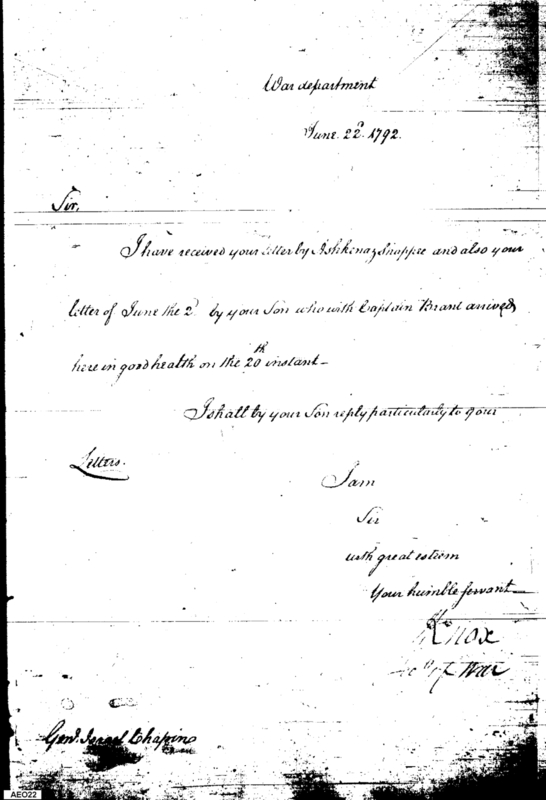 War department
June. 22d. 1792.
Sir,
I have received your letter by Ashkenaz Shappee and also your
letter of June the 2d. by your Son who with Captain Brant arrived
here in good health on the 20th instant—
I shall by your Son reply particularly to your
Letters.
I am
Sir
with great esteem
Your humble servant—
HKnox
Secy of War
Genl. Israel Chapin
AEO22